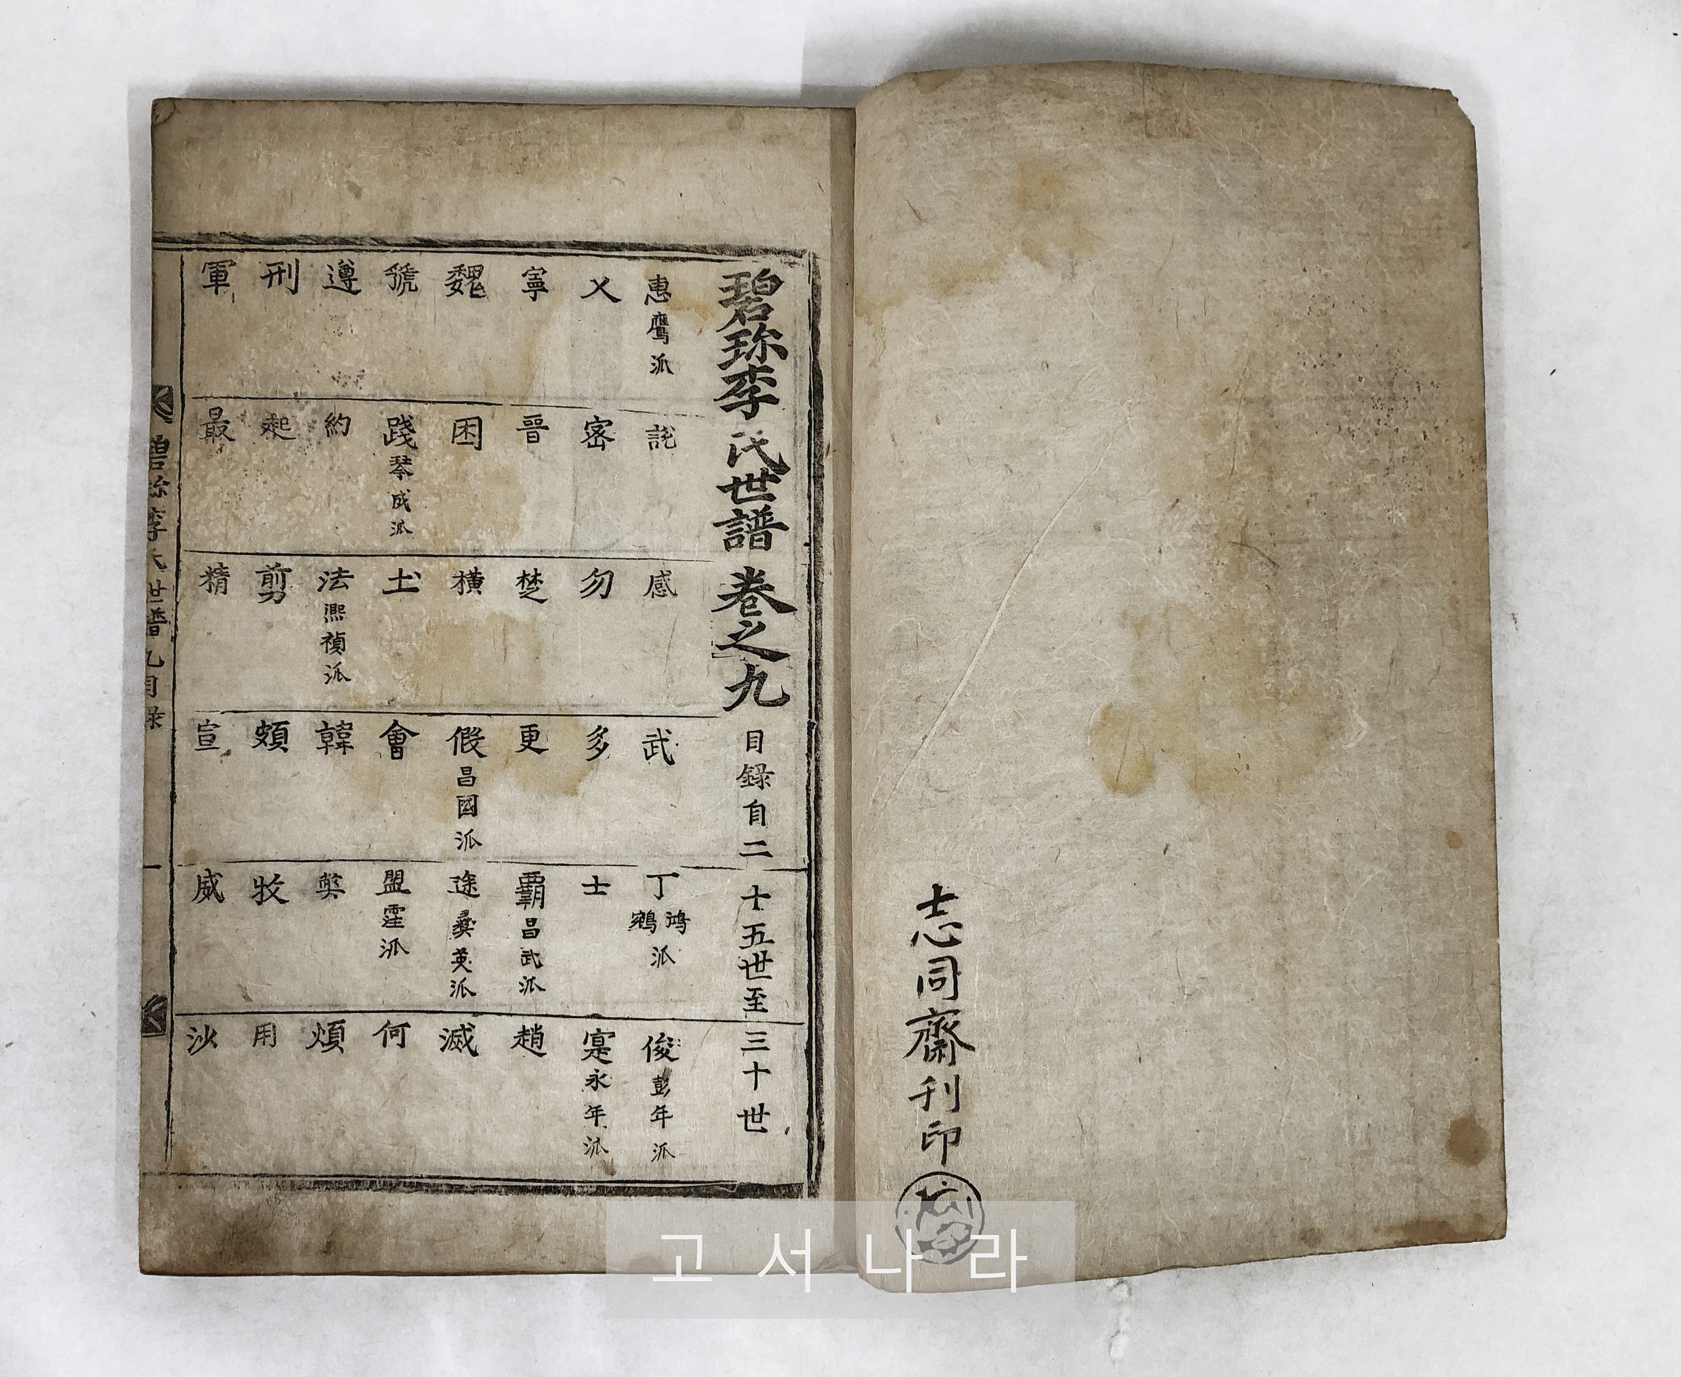 志同齋刊印
碧珎李氏世譜卷之九 目錄自二十五世至三十世
惠鷹派 説 感 武 丁鴻鵷派 俊彭年派
乂 密 勿 多 士 寔永年派
寧 晋 楚 更 覇昌武派 趙
魏 困 橫 假昌國派 途彛英派 滅
虢 踐琴成派 土 會 盟霔派 何
遵 約 法熙禎派 韓 獘 煩
刑 起 剪 頗 牧 用
軍 最 精 宣 威 沙
碧珎李氏世譜九目錄 一
고서나라